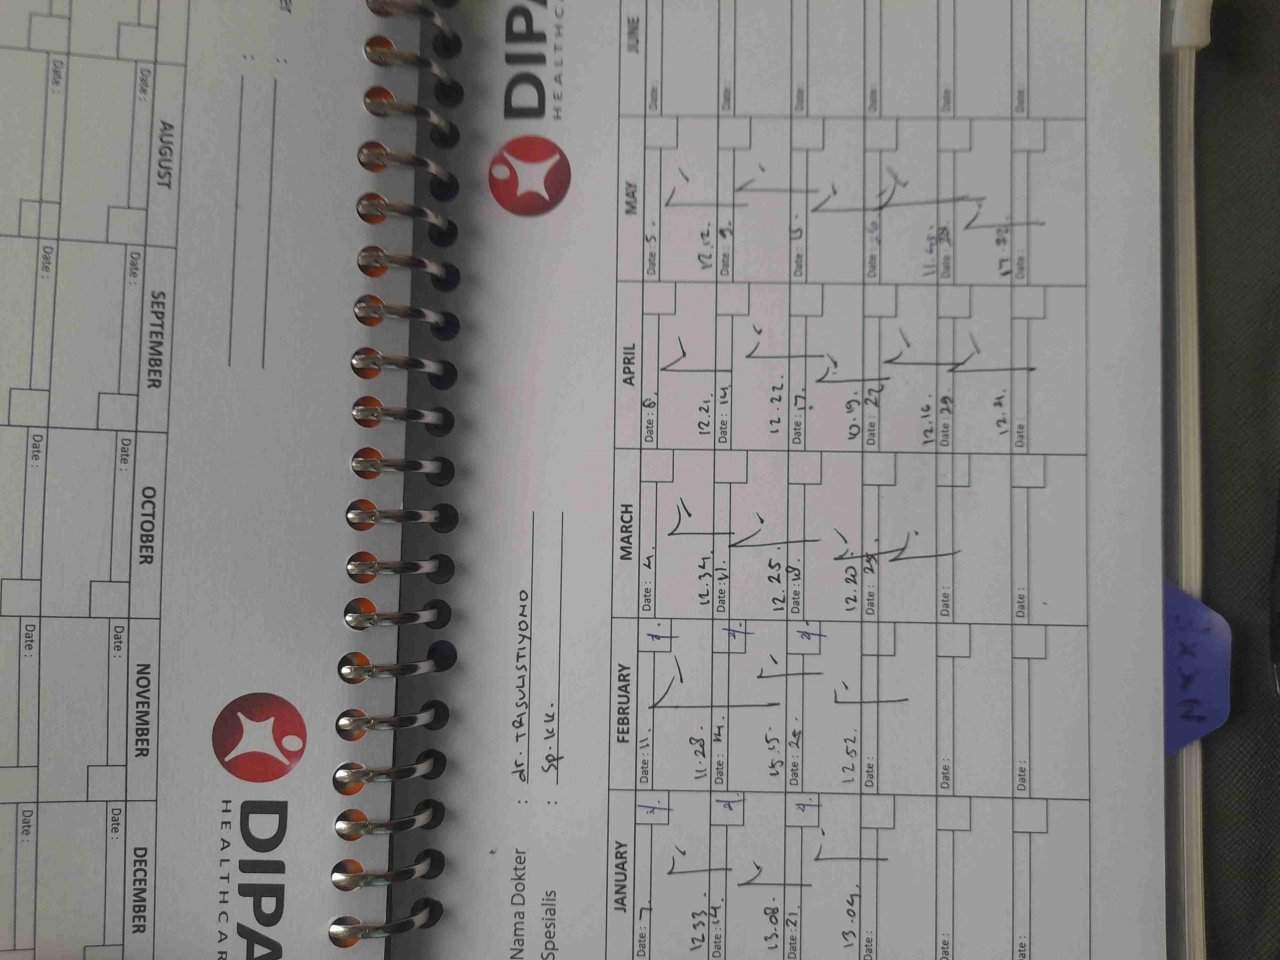 DIPA
HEALTHCA
Nama Dokter : dr. TRISULISTIYONO
Spesialis : Sp. KK.
JANUARY FEBRUARY MARCH APRIL MAY JUNE
Date : 7. Date : 11. Date : 4. Date : 8. Date : 5. Date :
12.33. 11.28. 12.34. 12.21. 12.12.
Date : 14. Date : 14. Date : 11. Date : 14. Date : 9. Date :
13.08. 15.15. 12.25. 12.22.
Date : 21. Date : 25. Date : 18. Date : 17. Date : Date :
13.04. 12.52. 12.20. 10.19.
Date : Date : Date : 25. Date : 22. Date : Date :
12.16. 11.45.
Date : Date : Date : Date : 29. Date : Date :
12.21.
Date : Date : Date : Date : Date : Date :
DIPA
HEALTHCAR
AUGUST SEPTEMBER OCTOBER NOVEMBER DECEMBER
Date : Date : Date : Date : Date :
Date : Date : Date : Date : Date :